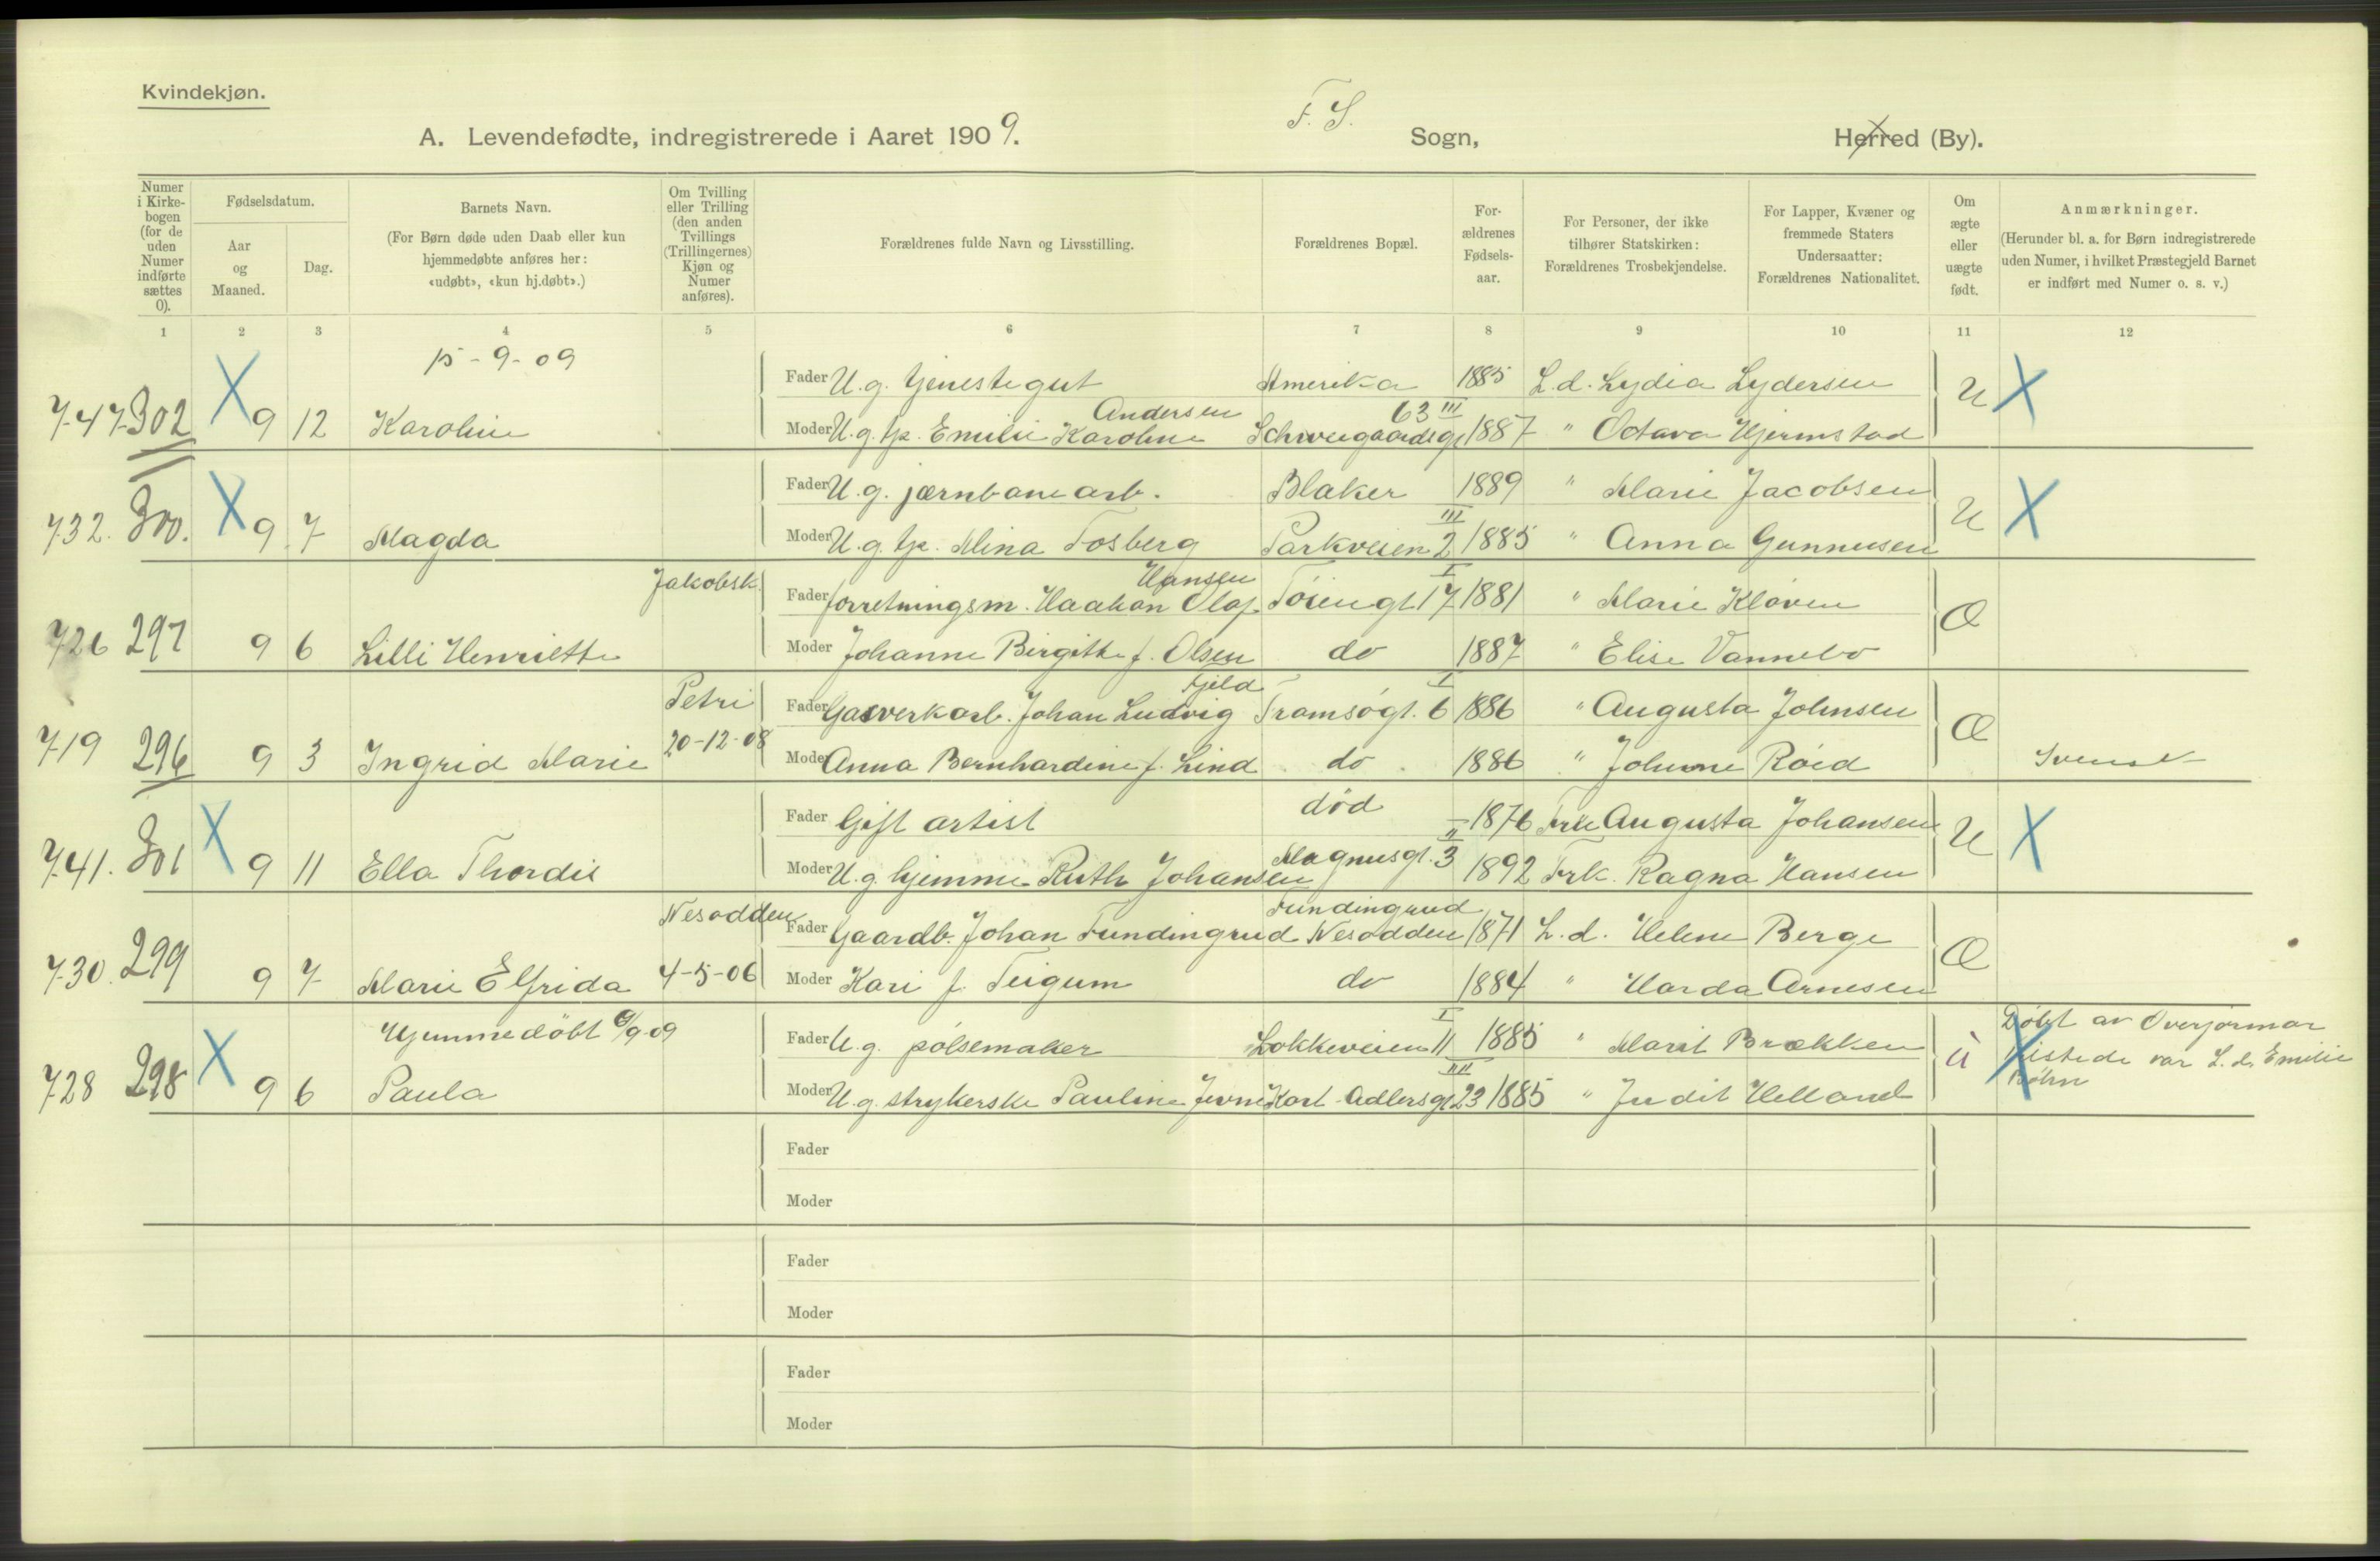 Kvindekjøn.
A. Levendefødte, indregistrerede i Aaret 1909. F. S. Sogn, Herred (By).
Numer i Kirkebogen (for de uden Numer indførte sættes 0).
Fødselsdatum.
Aar og Maaned.
Dag.
Barnets Navn.
(For Børn døde uden Daab eller kun hjemmedøbte anføres her: «udøbt», «kun hj.døbt».)
Om Tvilling eller Trilling (den anden Tvillings (Trillingernes) Kjøn og Numer anføres).
Forældrenes fulde Navn og Livsstilling.
Forældrenes Bopæl.
Forældrenes Fødselsaar.
For Personer, der ikke tilhører Statskirken: Forældrenes Trosbekjendelse.
For Lapper, Kvæner og fremmede Staters Undersaatter: Forældrenes Nationalitet.
Om ægte eller uægte født.
Anmærkninger.
(Herunder bl. a. for Børn indregistrerede uden Numer, i hvilket Præstegjeld Barnet er indført med Numer o. s. v.)
1 2 3 4 5 6 7 8 9 10 11 12
15-9-09
Fader U. g. tjenestegut Amerika 1885 L. d. Lydia Lydersen U X
Andersen 63 III
747 302 X 9 12 Karoline Moder U. g. tje. Emilie Karoline Schweigaardsgt 1887 " Octava Hjermstad
Fader U. g. jærnbanearb. Blaker 1889 " Marie Jacobsen U X
III
732. 300. X 9 7 Magda Moder U. g. tje. Mina Fosberg Parkveien 2 1885 " Anna Gunneusen
Jakobsk. Hansen I
Fader forretningsm. Haakon Olaf Tøiengt. 17 1881 " Marie Kløven Æ
726 297 9 6 Lilli Henriette Moder Johanne Birgitte f. Olsen do 1887 " Elise Vannebo
Petri Fjeld I
Fader Gasverkarb. Johan Ludvig Tromsøgt. 6 1886 " Augusta Johnsen Æ
719 296 9 3 Ingrid Marie 20-12-08 Moder Anna Bernhardine f. Lind do 1886 " Johanne Røed Svensk
Fader Gift artist død 1876 Frk Augusta Johansen U X
II
741. 301 X 9 11 Ella Thordis Moder U. g. hjemme Ruth Johansen Magnusgt. 3 1892 Frk. Ragna Hansen
Nesodden Fundingrud
Fader Gaardb. Johan Fundingrud Nesodden 1871 L. d. Helene Berge Æ
730. 299 9 7 Marie Elfrida 4-5-06 Moder Kari f. Teigum do 1884 " Harda Arnesen
Hjemmedøbt 6/9-09 I Døbt av Overjormor
Fader U. g. pølsemaker Løkkeveien 11 1885 " Marit Brækken U X
tilstede var L. d. Emilie
III
728 298 X 9 6 Paula Moder U. g. strykerske Pauline Jevne Kart Adlersgt 23 1885 " Judit Helland Bøhn
Fader
Moder
Fader
Moder
Fader
Moder